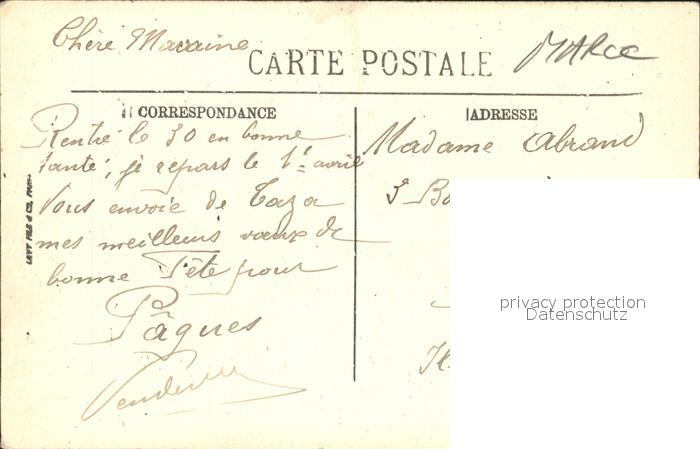 Chère Marraine
CARTE POSTALE
MAROC
CORRESPONDANCE
Rentré le 30 en bonne
santé, je repars le 1er avril
Vous envoie de Taza
mes meilleurs vœux de
bonne Fête pour
Pâques
ADRESSE
Madame Abrand
LEVY FILS & CO, PARIS
privacy protection
Datenschutz